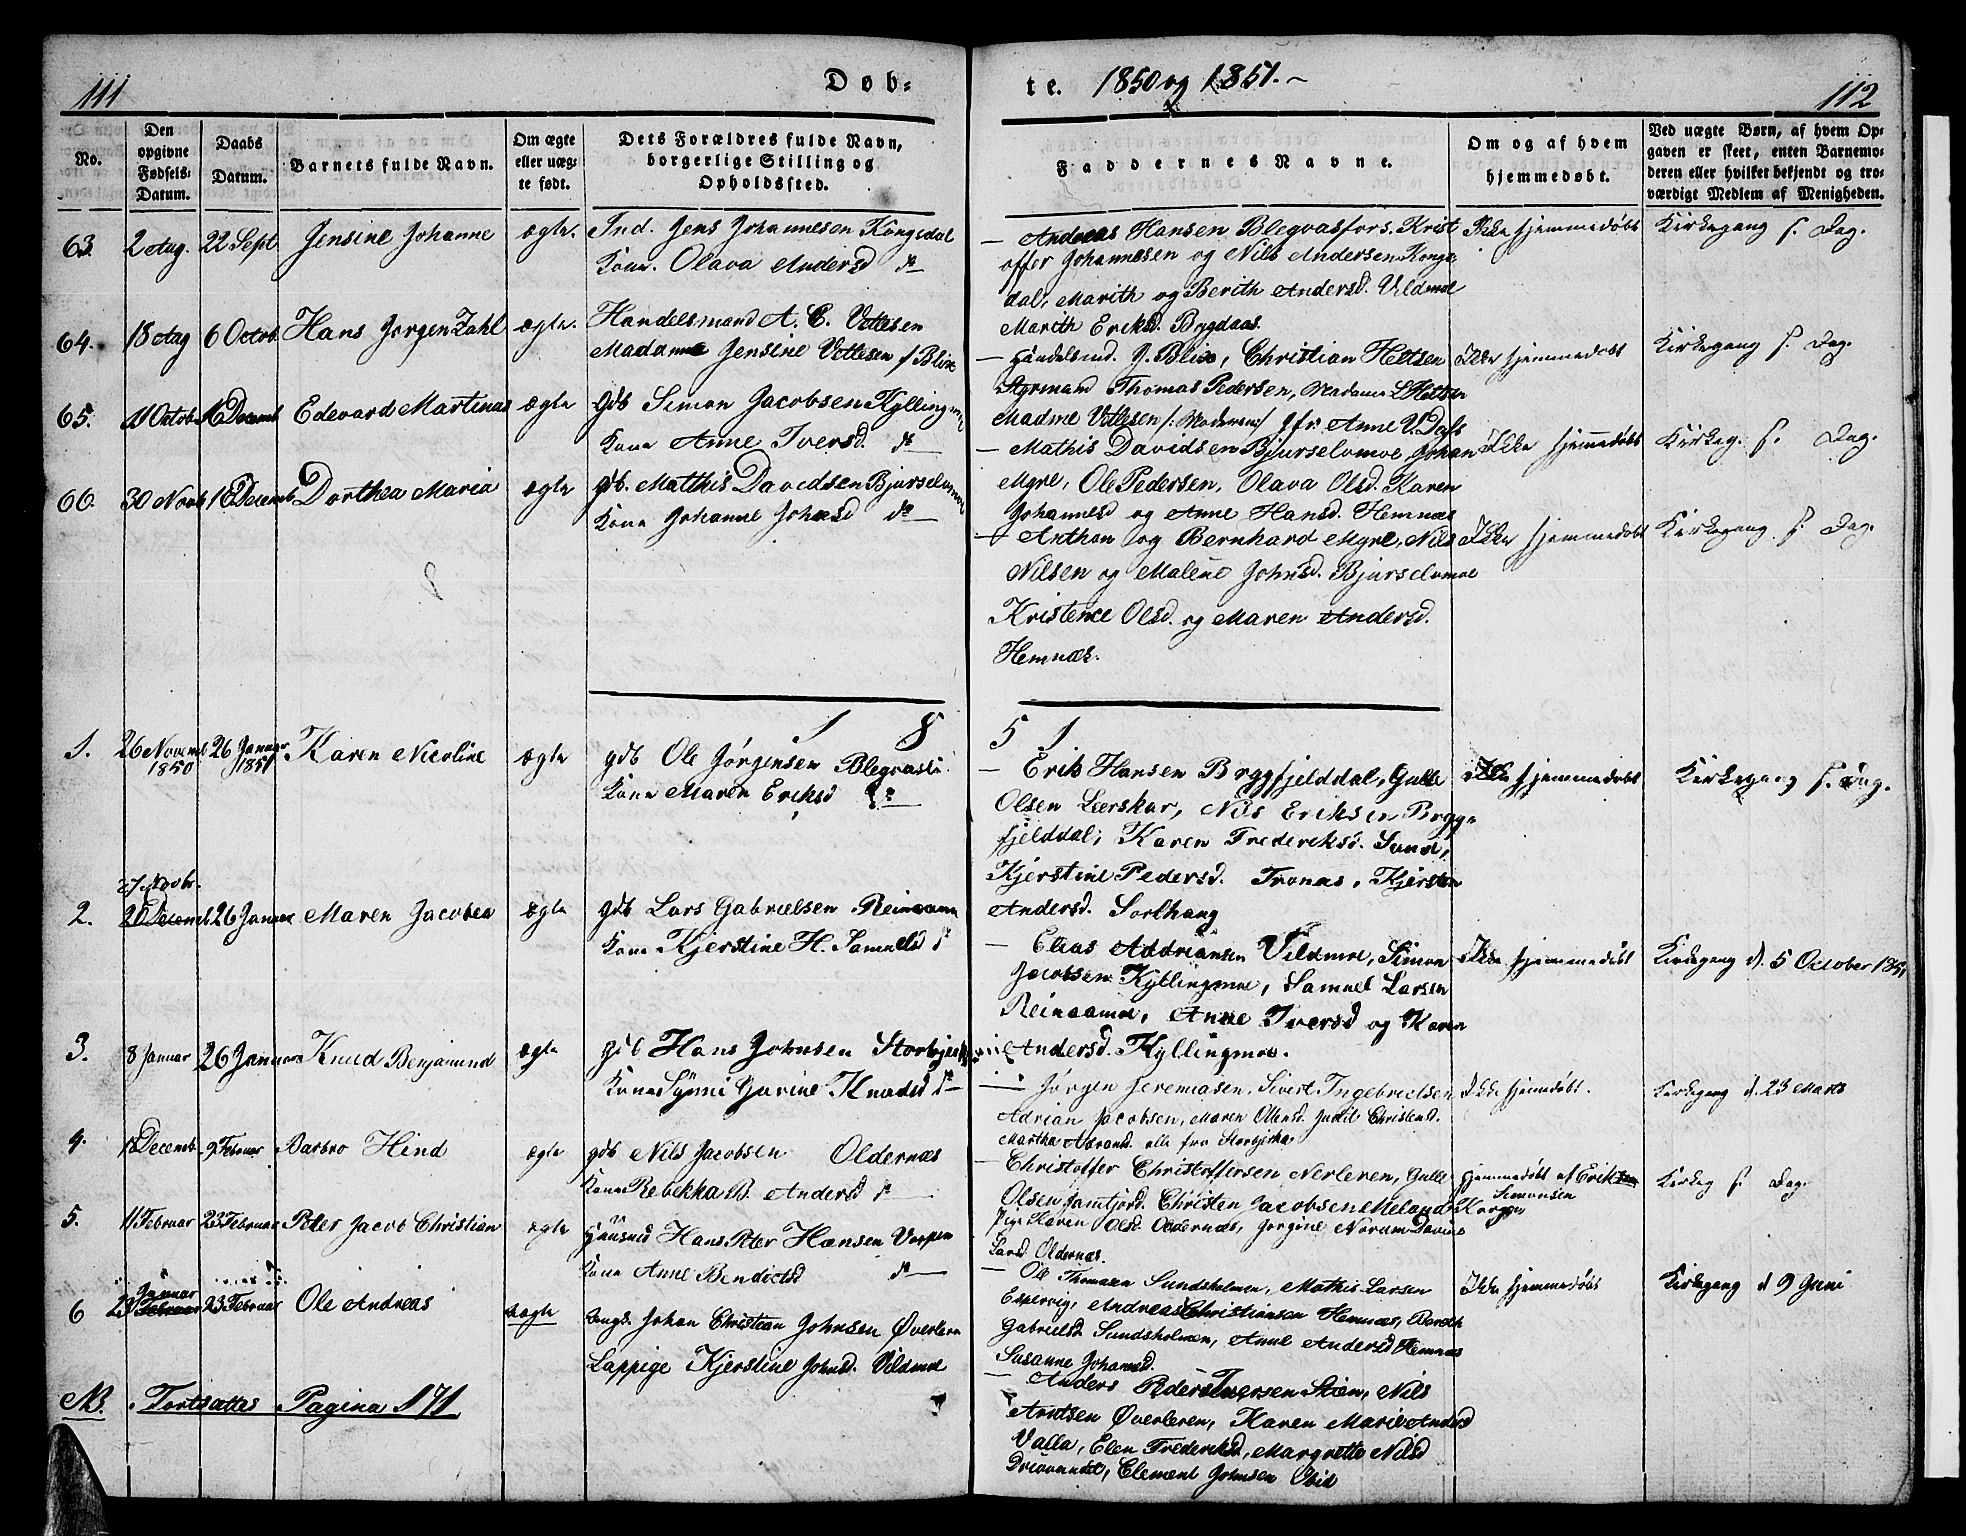 111
Døb-
te. 1850 og 1851.
112
No.
Den opgivne Fødsels-Datum.
Daabs Datum.
Barnets fulde Navn.
Om ægte eller uæg-te født.
Dets Forældres fulde Navn, borgerlige Stilling og Opholdssted.
Faddernes Navne.
Om og af hvem hjemmedøbt.
Ved uægte Børn, af hvem Op-gaven er skeet, enten Barnemo-deren eller hvilket bekjendt og tro-værdigt Medlem af Menigheden.
63. 2 Aug. 22 Sept Jensine Johanne ægte. Ind. Jens Johannesen Kongsdal
Kone. Olava Andersd do
— Andreas Hansen Blegvasfors. Krist
offer Johannesen og Nils Andersen Kongs
dal, Marith og Berith Andersd. Vildmoe
Marith Eriksd. Bygdaas.
Ikke hjemmedøbt
Kirkegang s. Dag.
64. 18 Aug 6 Octob. Hans Jørgen Zahl ægte. Handelsmand A. C. Vettesen
Madame Jensine Vettesen f Blix
— Handelsmd. J. Blix, Christian Heltzen
Styrmand Thomas Pedersen, Madame L Heltzen
Madme Vettesen /: Moderen :/ Jfr. Anne V. Dass
Ikke hjemmedøbt
Kirkegang s. Dag.
65. 11 Octob. 16 Decemb Edevard Martinus ægte Gdb Simon Jacobsen Kyllingmoe
Kone Anne Iversd. do
— Mathis Davidsen Bjurselvmoe, Johan
Myre, Ole Pedersen, Olava Olsd. Karen
Johannesd og Anne Hansd. Hemnæs
Ikke hjemmedøbt
Kirkeg. s. Dag.
66. 30 Novb 16 Decemb. Dorthea Maria ægte gdb. Matthis Davidsen Bjurselvmoe
Kone Johanne Johnsd do
— Anthon og Bernhard Myre, Nils
Nilsen og Malene Johnsd. Bjurselvmoe
Kristence Olsd. og Maren Andersd.
Hemnæs.
Ikke hjemmedøbt
Kirkegang s. Dag.
1 8 5 1
1. 26 Novemb 1850 26 Januar 1851 Karen Nicoline ægte gdb Ole Jørgensen
Kone Maren Eriksd do
— Erik Hansen Bryggfjelddal, Gulle
Olsen Leerskar, Nils Eriksen Brygg-
fjelddal, Karen Frederiksd.
Kjerstine Pedersd. Kjersten
Andersd. Sorthaug
Ikke hjemmedøbt
Kirkegang s. Dag.
2. 26 Januar Maren Jacobea ægte gdb Lars Gabrielsen Reinaamo
Kone Kjerstine H. Samuelsd do
— Elias Addriansen Vildmoe, Simon
Jacobsen Kyllingmoe, Samuel Larsen
Reinaamoe, Anne Iversd og Karen
Andersd. Kyllingmoe.
Ikke hjemmedøbt
Kirkegang d. 5 October 1851
3. 8 Januar 26 Januar Knud Benjamind ægte gdb Hans Johnsen
Kone Synni Gurine Knudsd do
— Jørgen Jeremiasen, Sivert Ingebrigtsen
Adrian Jacobsen, Maren Olsd. Judit Christensd.
Martha Adriansd. alle fra Storbjerka
Ikke hjemmedøbt.
Kirkegang d. 23 Marts
4. 18 Decemb. 9 Februar Barbro Hend ægte gdb Nils Jacobsen Oldernæs
Kone Rebekka B. Andersd do
— Christoffer Christoffersen Nerleren, Gulle
Olsen Jamtjord. Christen Jacobsen Meland
Pige Karen Olsd. Oldernæs, Jorgine Norum Davine
Larsd Oldernæs.
Hjemmedøbt af Erik
Simonsen
Korgen
Kirkeg s. Dag.
5. 11 Februar 23 Februar Peter Jacob Christian ægte Huusmd Hans Peter Hansen Varpen
Kone Anne Bendictsd do
— Ole Thomasen Sundsholmen, Mathis Larsen
Espervig, Andreas Christiansen Hemnæs, Bereth
Gabrielsd Sundsholmen, Anne Andersd Hemnæs
Susanne Johansd.
Ikke hjemmedøbt
Kirkegang d 9 Juni
6 23 Januar 23 Februar Ole Andreas uægte Ungk. Johan Christian Johnsen Øverleren
Lappige Kjerstine Johnsd. Vildmoe
— Anders Pedersen, Nils
Arntsen Øverleren, Karen Marie Andersd
Valla, Elen Frederiksd, Margrette Nilsd
Clement Johnsen Ibid
NB. Fortsættes Pagina 171